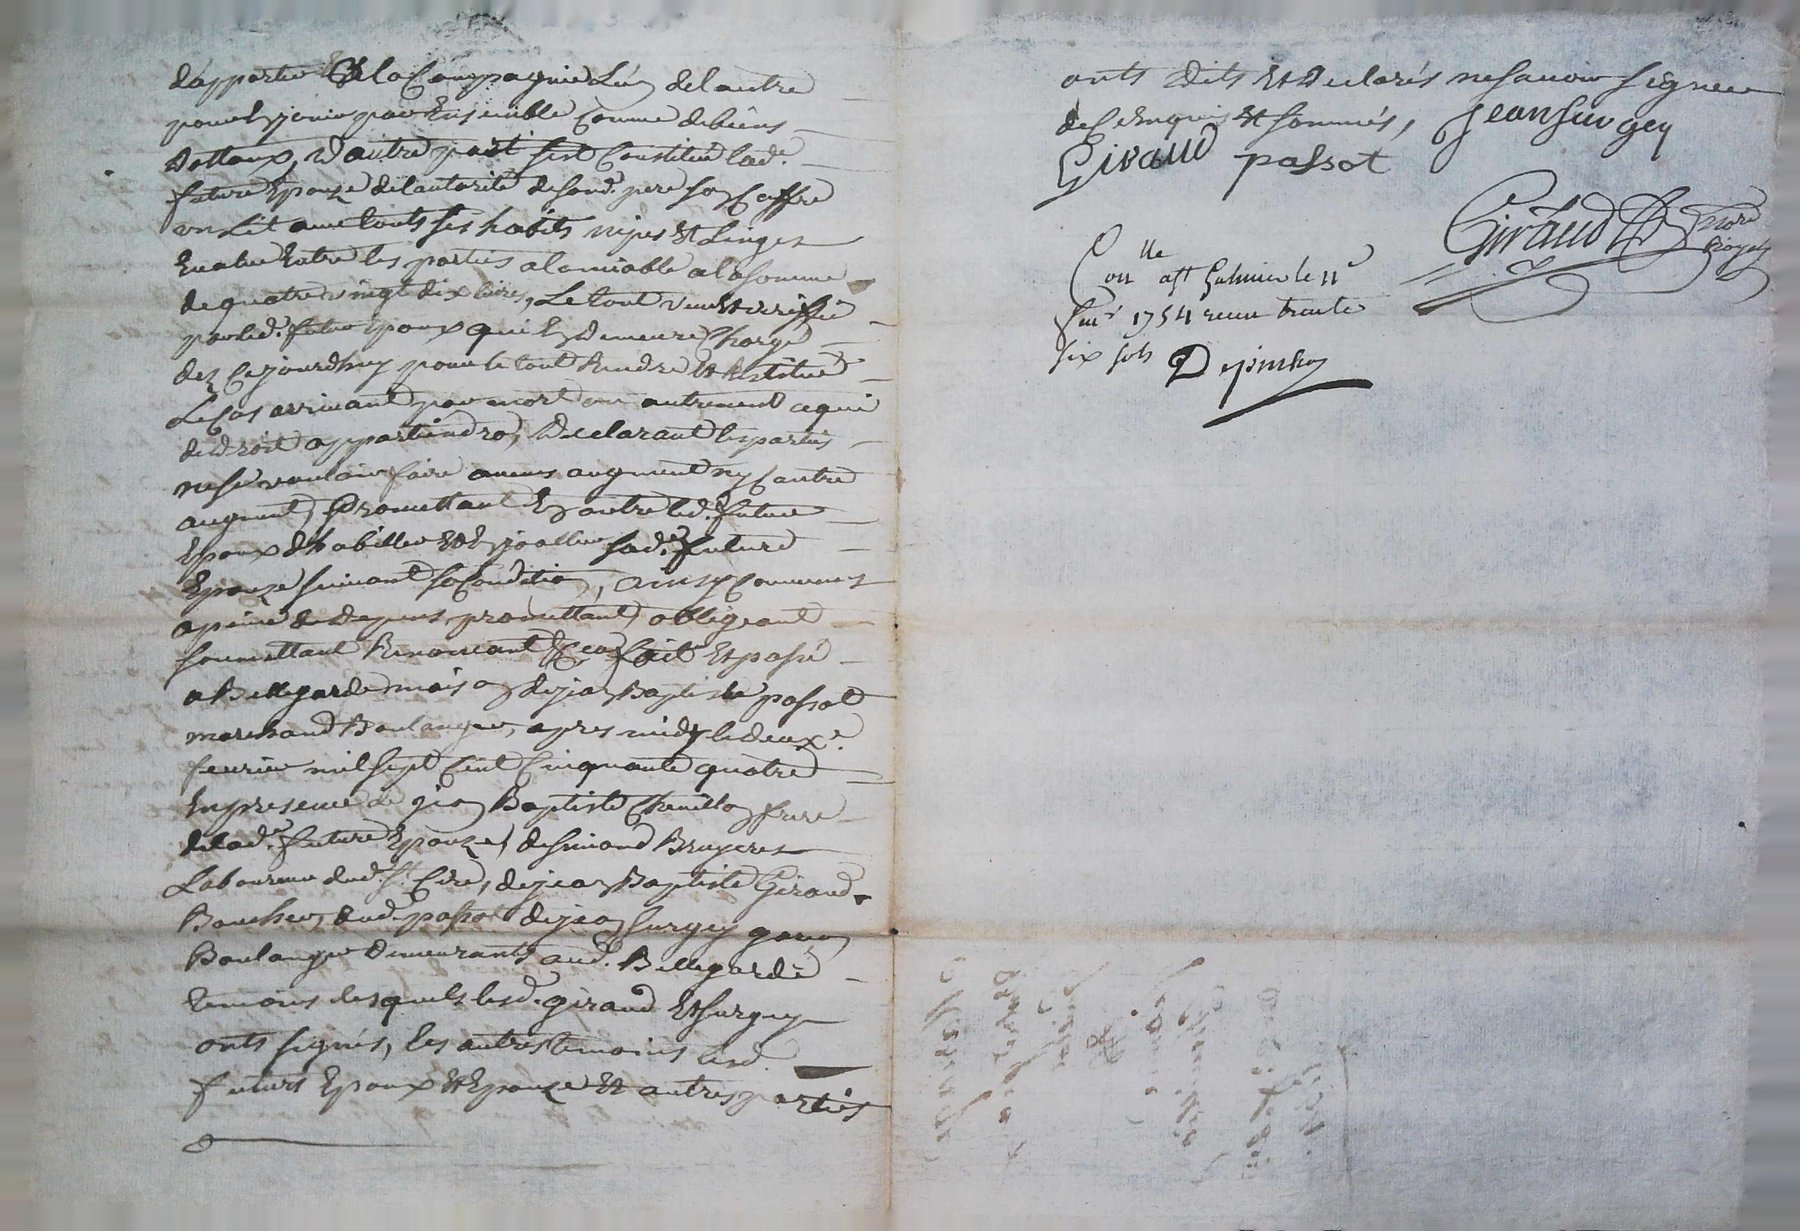 d'apporter Et la Compagnie L'un de l'autre
pour En jouir par Ensemble Comme de biens
Dottaux, d'autre part s'est Constitué lad.e
future Epouze de l'autorité desond. pere son Coffre
un Lit avec touts ses habits nipes Et Linges
Evalué Entre les parties alamiable ala somme
de quatre vingt dix livres, Le tout vu et veriffié
par led. futur Epoux qui En Demeure Chargé
dez Cejourdhuy pour le tout Rendre Et Restituer
Le Cas arrivant par mort ou autrement a qui
de droit appartiendra, Declarant les parties
ne se vouloir faire aucuns augment ny Contre
augment, Promettant En outre led. futur
Epoux d'habiller Et Enjoaller sad.e future
Epouze suivant sa Condition, ainsy Convenus
a peine de Depens, promettant, obligeant
soumettant Renoncant &c fait Et passé
a Bellegarde maison de jean Baptiste passot
marchand Boulanger, apres midy le deuxe.
fevrier mil sept Cent Cinquante quatre
En presence de jean Baptiste Chevillon frere
de lad.e future Epouze, de simond Bruyeres
Laboureur dud. St. Cire, de jean Baptiste Giraud
Boucher, dud. passot de jean surgey garçon
Boulanger Demeurants aud. Bellegarde
temoins desquels lesd. giraud Et surgey
onts signés, les autres temoins lesd.
futurs Epoux Et Epouze Et autres parties
onts dits Et Declarés ne savoir signer
de Ce Enquis Et sommés, jean surgey
Giraud passot
Giraud Nore Royal
Conlle a St Galmier le 11e
fevr 1754 recu trente
six sols Depinhac